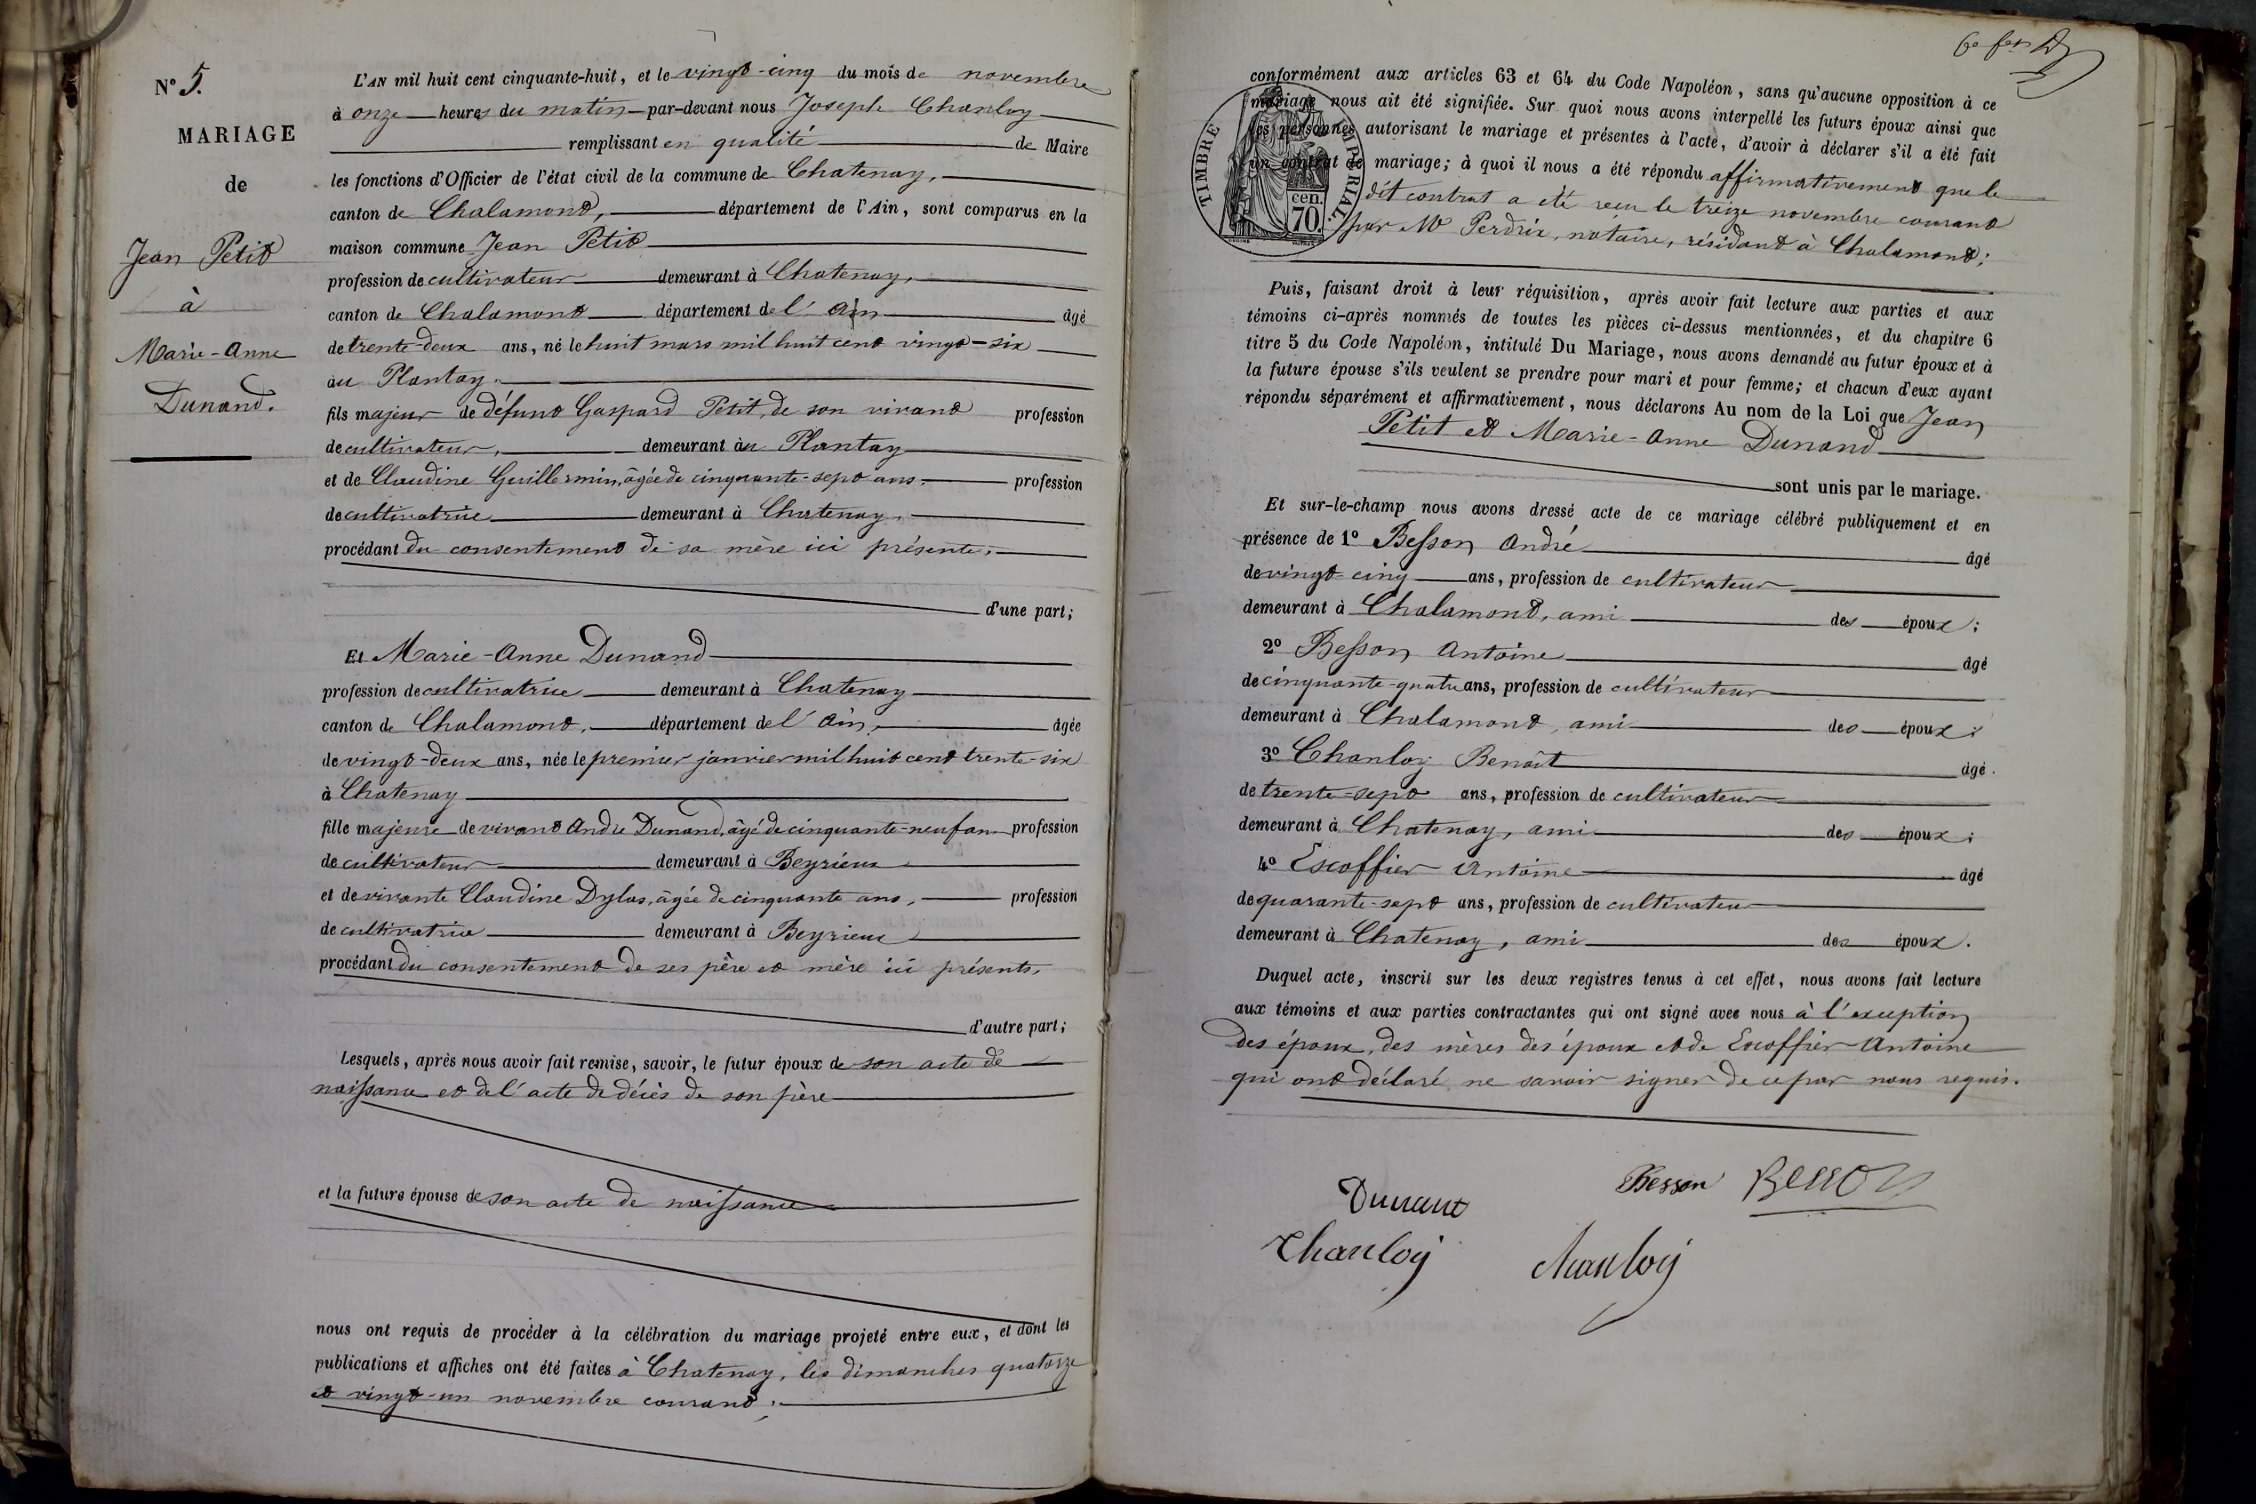 N° 5.
MARIAGE
de
Jean Petit
à
Marie-Anne
Dunand.
L'AN mil huit cent cinquante-huit, et le vingt-cinq du mois de novembre
à onze heures du matin par-devant nous Joseph Chanloy
remplissant en qualité de Maire
les fonctions d'Officier de l'état civil de la commune de Chatenay,
canton de Chalamont, département de l'Ain, sont comparus en la
maison commune Jean Petit
profession de cultivateur demeurant à Chatenay,
canton de Chalamont département de l'Ain âgé
de trente-deux ans, né le huit mars mil huit cent vingt-six
au Plantay.
fils majeur de défunt Gaspard Petit, de son vivant profession
de cultivateur, demeurant au Plantay
et de Claudine Guillermin, âgée de cinquante-sept ans, profession
de cultivatrice demeurant à Chatenay,
procédant du consentement de sa mère ici présente.
d'une part;
Et Marie-Anne Dunand
profession de cultivatrice demeurant à Chatenay
canton de Chalamont, département de l'Ain, âgée
de vingt-deux ans, née le premier janvier mil huit cent trente-six
à Chatenay
fille majeure de vivant André Dunand, âgé de cinquante-neuf ans profession
de cultivateur demeurant à Beyrieux
et de vivante Claudine Dylas, âgée de cinquante ans, profession
de cultivatrice demeurant à Beyrieux
procédant du consentement de ses père et mère ici présents,
d'autre part;
Lesquels, après nous avoir fait remise, savoir, le futur époux de son acte de
naissance et de l'acte de décès de son père
et la future épouse de son acte de naissance
nous ont requis de procéder à la célébration du mariage projeté entre eux, et dont les
publications et affiches ont été faites à Chatenay, les dimanches quatorze
et vingt-un novembre courant;
conformément aux articles 63 et 64 du Code Napoléon, sans qu'aucune opposition à ce
mariage nous ait été signifiée. Sur quoi nous avons interpellé les futurs époux ainsi que
les personnes autorisant le mariage et présentes à l'acte, d'avoir à déclarer s'il a été fait
un contrat de mariage; à quoi il nous a été répondu affirmativement que le
dit contrat a été reçu le treize novembre courant
par Me Perdrix, notaire, résidant à Chalamont;
TIMBRE IMPÉRIAL.
70 cen.
Puis, faisant droit à leur réquisition, après avoir fait lecture aux parties et aux
témoins ci-après nommés de toutes les pièces ci-dessus mentionnées, et du chapitre 6
titre 5 du Code Napoléon, intitulé Du Mariage, nous avons demandé au futur époux et à
la future épouse s'ils veulent se prendre pour mari et pour femme; et chacun d'eux ayant
répondu séparément et affirmativement, nous déclarons Au nom de la Loi que Jean
Petit et Marie-Anne Dunand
sont unis par le mariage.
Et sur-le-champ nous avons dressé acte de ce mariage célébré publiquement et en
présence de 1° Besson André âgé
de vingt-cinq ans, profession de cultivateur
demeurant à Chalamont, ami des époux;
2° Besson Antoine âgé
de cinquante-quatre ans, profession de cultivateur
demeurant à Chalamont, ami des époux;
3° Chanloy Benoît âgé
de trente-sept ans, profession de cultivateur
demeurant à Chatenay, ami des époux;
4° Escoffier Antoine âgé
de quarante-sept ans, profession de cultivateur
demeurant à Chatenay, ami des époux.
Duquel acte, inscrit sur les deux registres tenus à cet effet, nous avons fait lecture
aux témoins et aux parties contractantes qui ont signé avec nous à l'exception
des époux, des mères des époux et de Escoffier Antoine
qui ont déclaré ne savoir signer de ce par nous requis.
Besson Besson
Dunant
Chanloy Chanloy